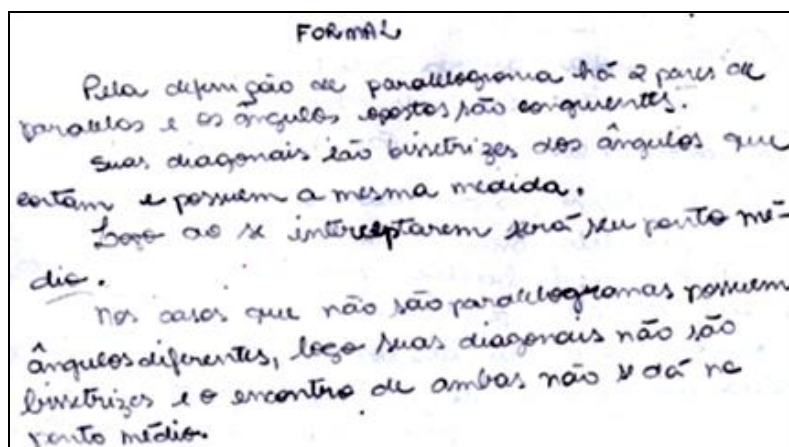 FORMAL
Pela definição de paralelograma há 2 pares de
paralelos e os ângulos opostos são congruentes.
Suas diagonais são bissetrizes dos ângulos que
cortam e possuem a mesma medida.
Logo ao se interceptarem será seu ponto mé-
dio.
Nos casos que não são paralelogramas possuem
ângulos diferentes, logo suas diagonais não são
bissetrizes e o encontro de ambas não se dá no
ponto médio.